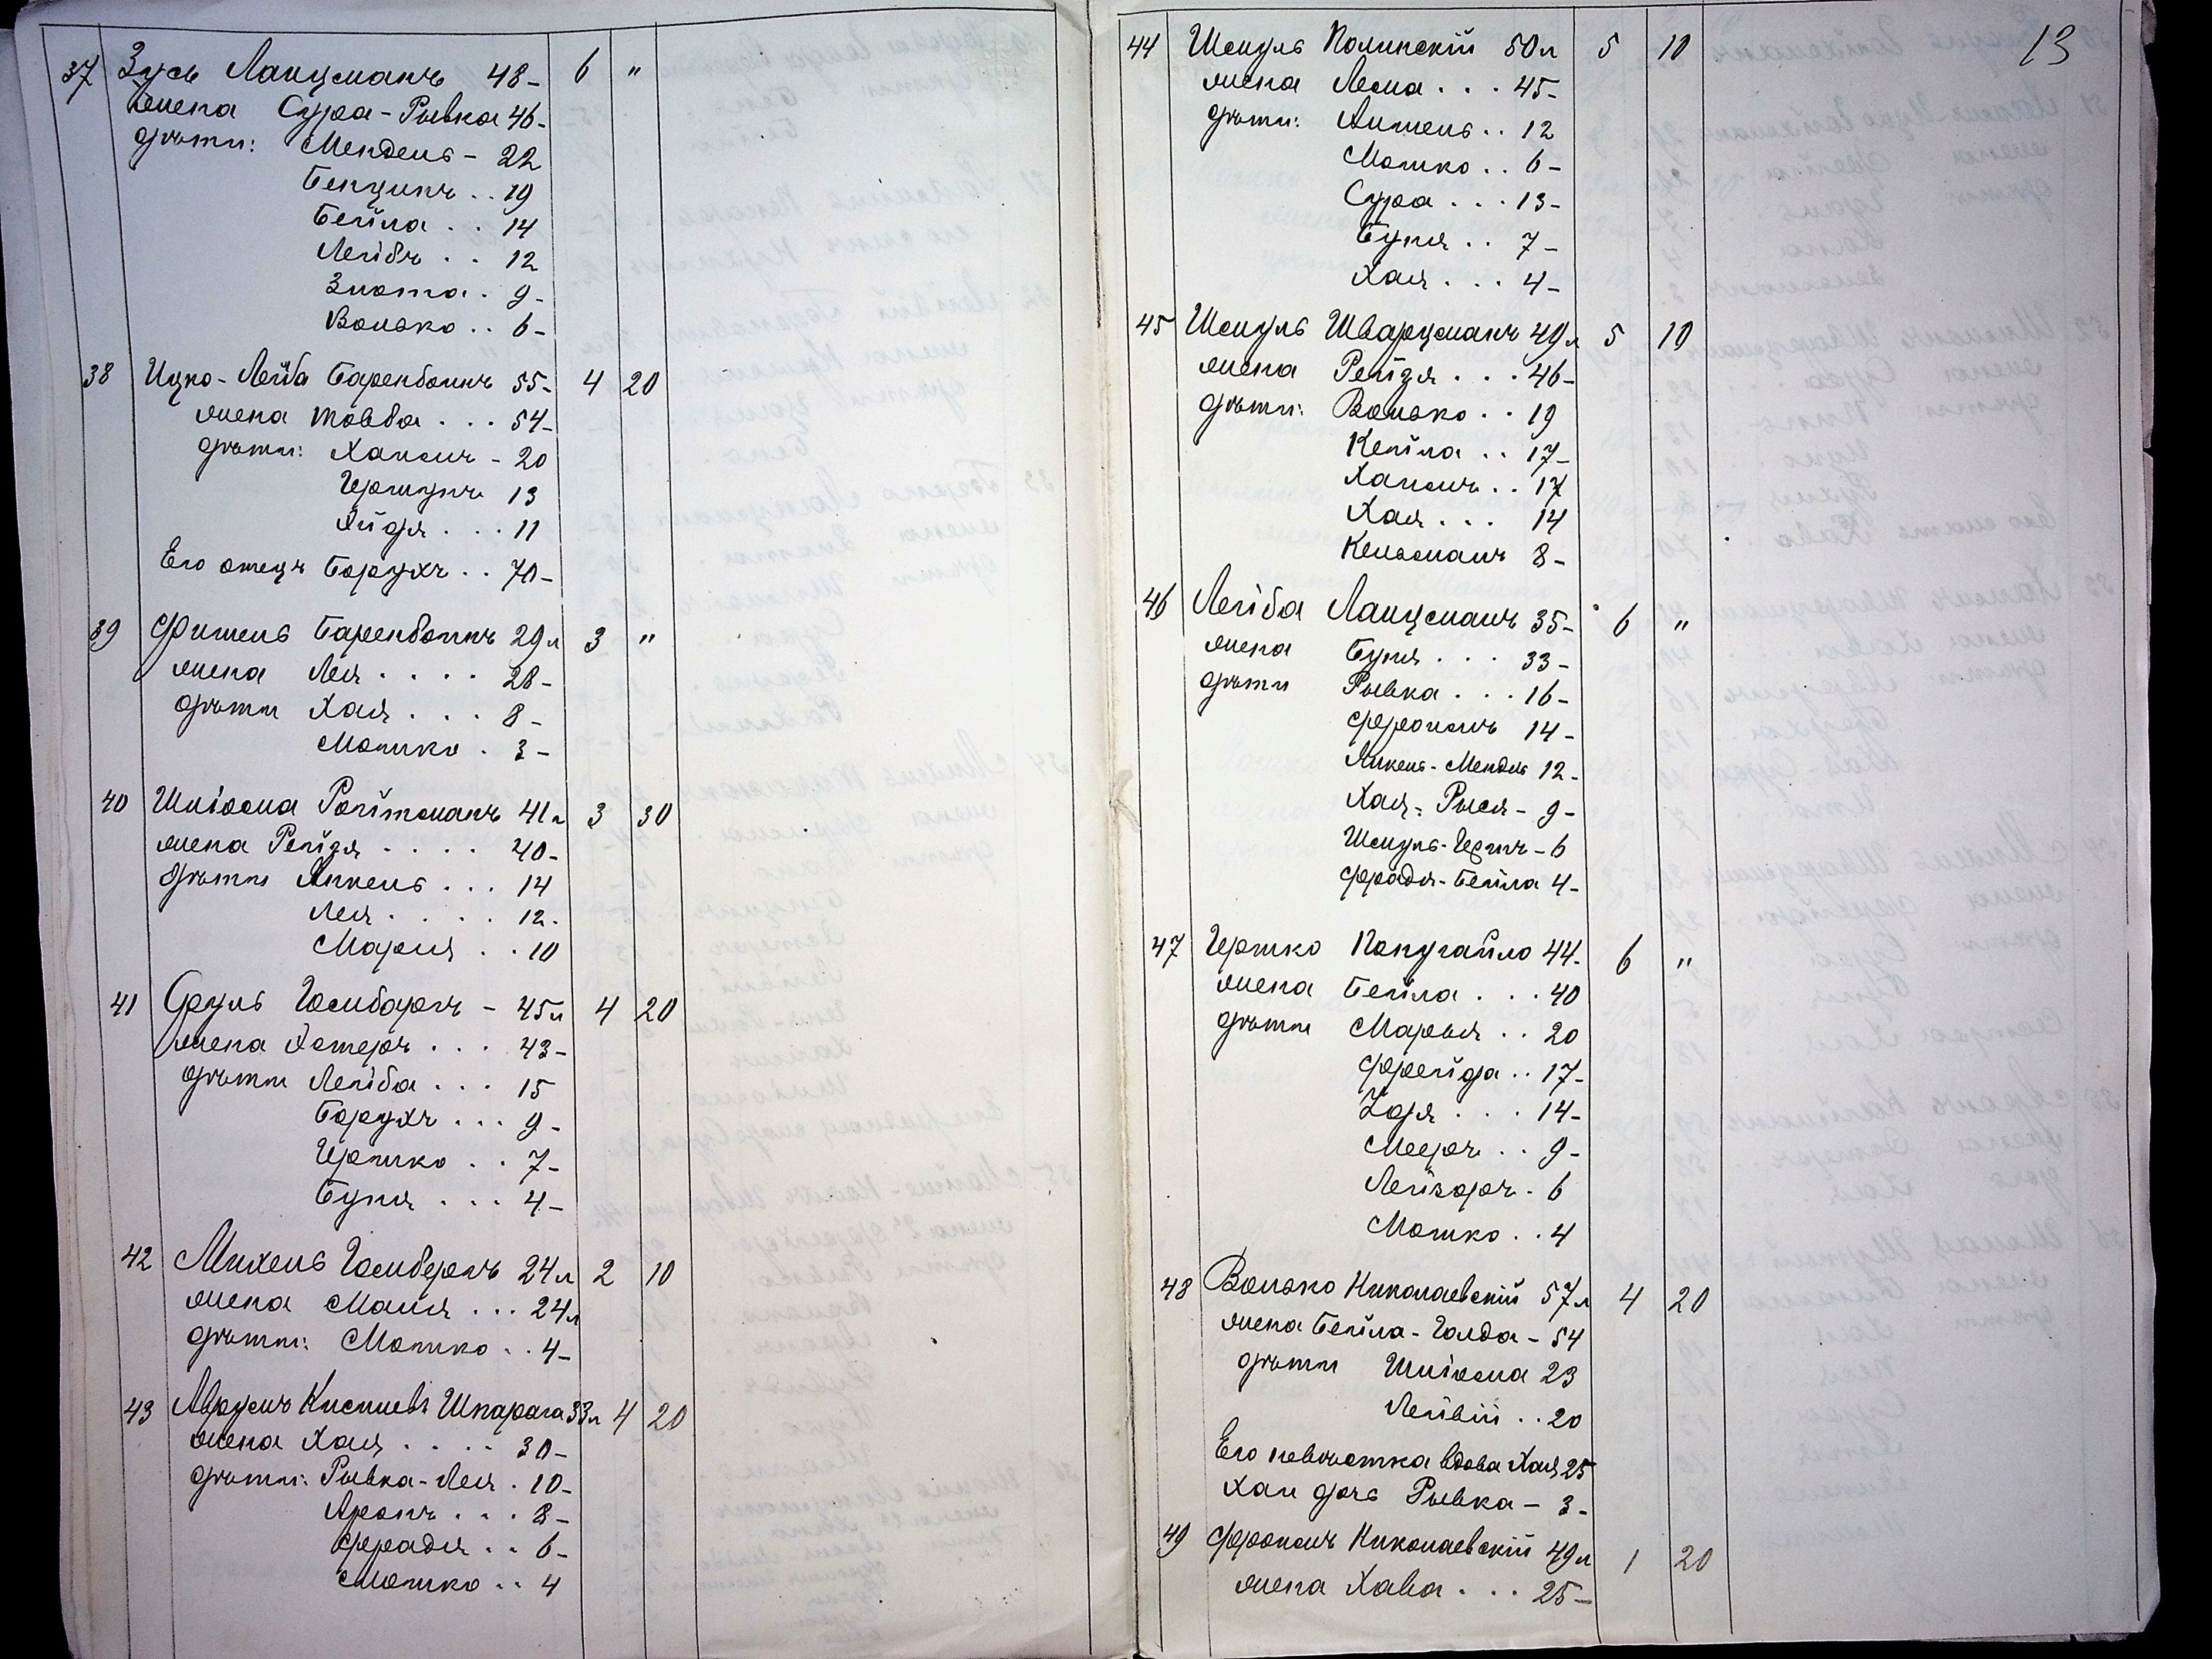 37 Зусь Ланцманъ 48- 6 "
жена Сура-Рывка 46-
дѣти: Мендель - 22
Бенцинъ .. 19
Бейла .. 14
Лейбъ .. 12
Злота . 9-
Волько .. 6-
38 Ицко-Лейба Баренбоимъ 55- 4 20
жена Товба ... 54-
дѣти: Хаимъ - 20
Гершунъ 13
Хайдя ... 11
Его отецъ Борухъ .. 70-
39 Фишель Баренбоимъ 29л 3 "
жена Лея .... 28-
дѣти Хая ... 8-
Мошко . 3-
40 Шліома Ройтманъ 41л 3 30
жена Рейзя .... 40-
дѣти Янкель ... 14
Лея .... 12.
Мария .. 10
41 Сруль Гомбаргъ - 45л 4 20
жена Хстеръ ... 43-
дѣти Лейба ... 15
Борухъ ... 9-
Гершко .. 7-
Буня ... 4-
42 Михель Гомбергъ 24л 2 10
жена Маня ... 24л
дѣти: Мошко .. 4-
43 Аврумъ Кисилевъ Шпарага 33л 4 20
жена Хая .... 30-
дѣти: Рывка-Лея . 10-
Аронъ ... 8-
Фрадя .. 6-
Мошко .. 4
13
44 Шмуль Полинскій 50л 5 10
жена Лема ... 45-
дѣти: Аншель .. 12
Мошко .. 6-
Сура ... 13-
Буня .. 7-
Хая ... 4-
45 Шмуль Шварцманъ 49л 5 10
жена Рейзя ... 46-
дѣти: Волько .. 19
Кейла .. 17-
Хаимъ .. 17
Хая ... 14
Кельманъ 8-
46 Лейба Ланцманъ 35- 6 "
жена Буня ... 33-
дѣти Рывка ... 16-
Фроимъ 14-
Янкель-Мендль 12-
Хая-Рыся - 9-
Шмуль-Гершъ - 6
Фрадя-Бейла 4-
47 Гершко Попугайло 44- 6 "
жена Бейла ... 40
дѣти Марья .. 20
Фрейда .. 17-
Удя ... 14-
Мееръ .. 9-
Лейзоръ . 6
Мошко .. 4
48 Волько Николаевскій 57л 4 20
жена Бейла-Голда - 54
дѣти Шліома 23
Лейвій .. 20
Его невѣстка вдова Хая 25
Хаи дочь Рывка - 3-
49 Фроимъ Николаевскій 49л 1 20
жена Хава ... 25-